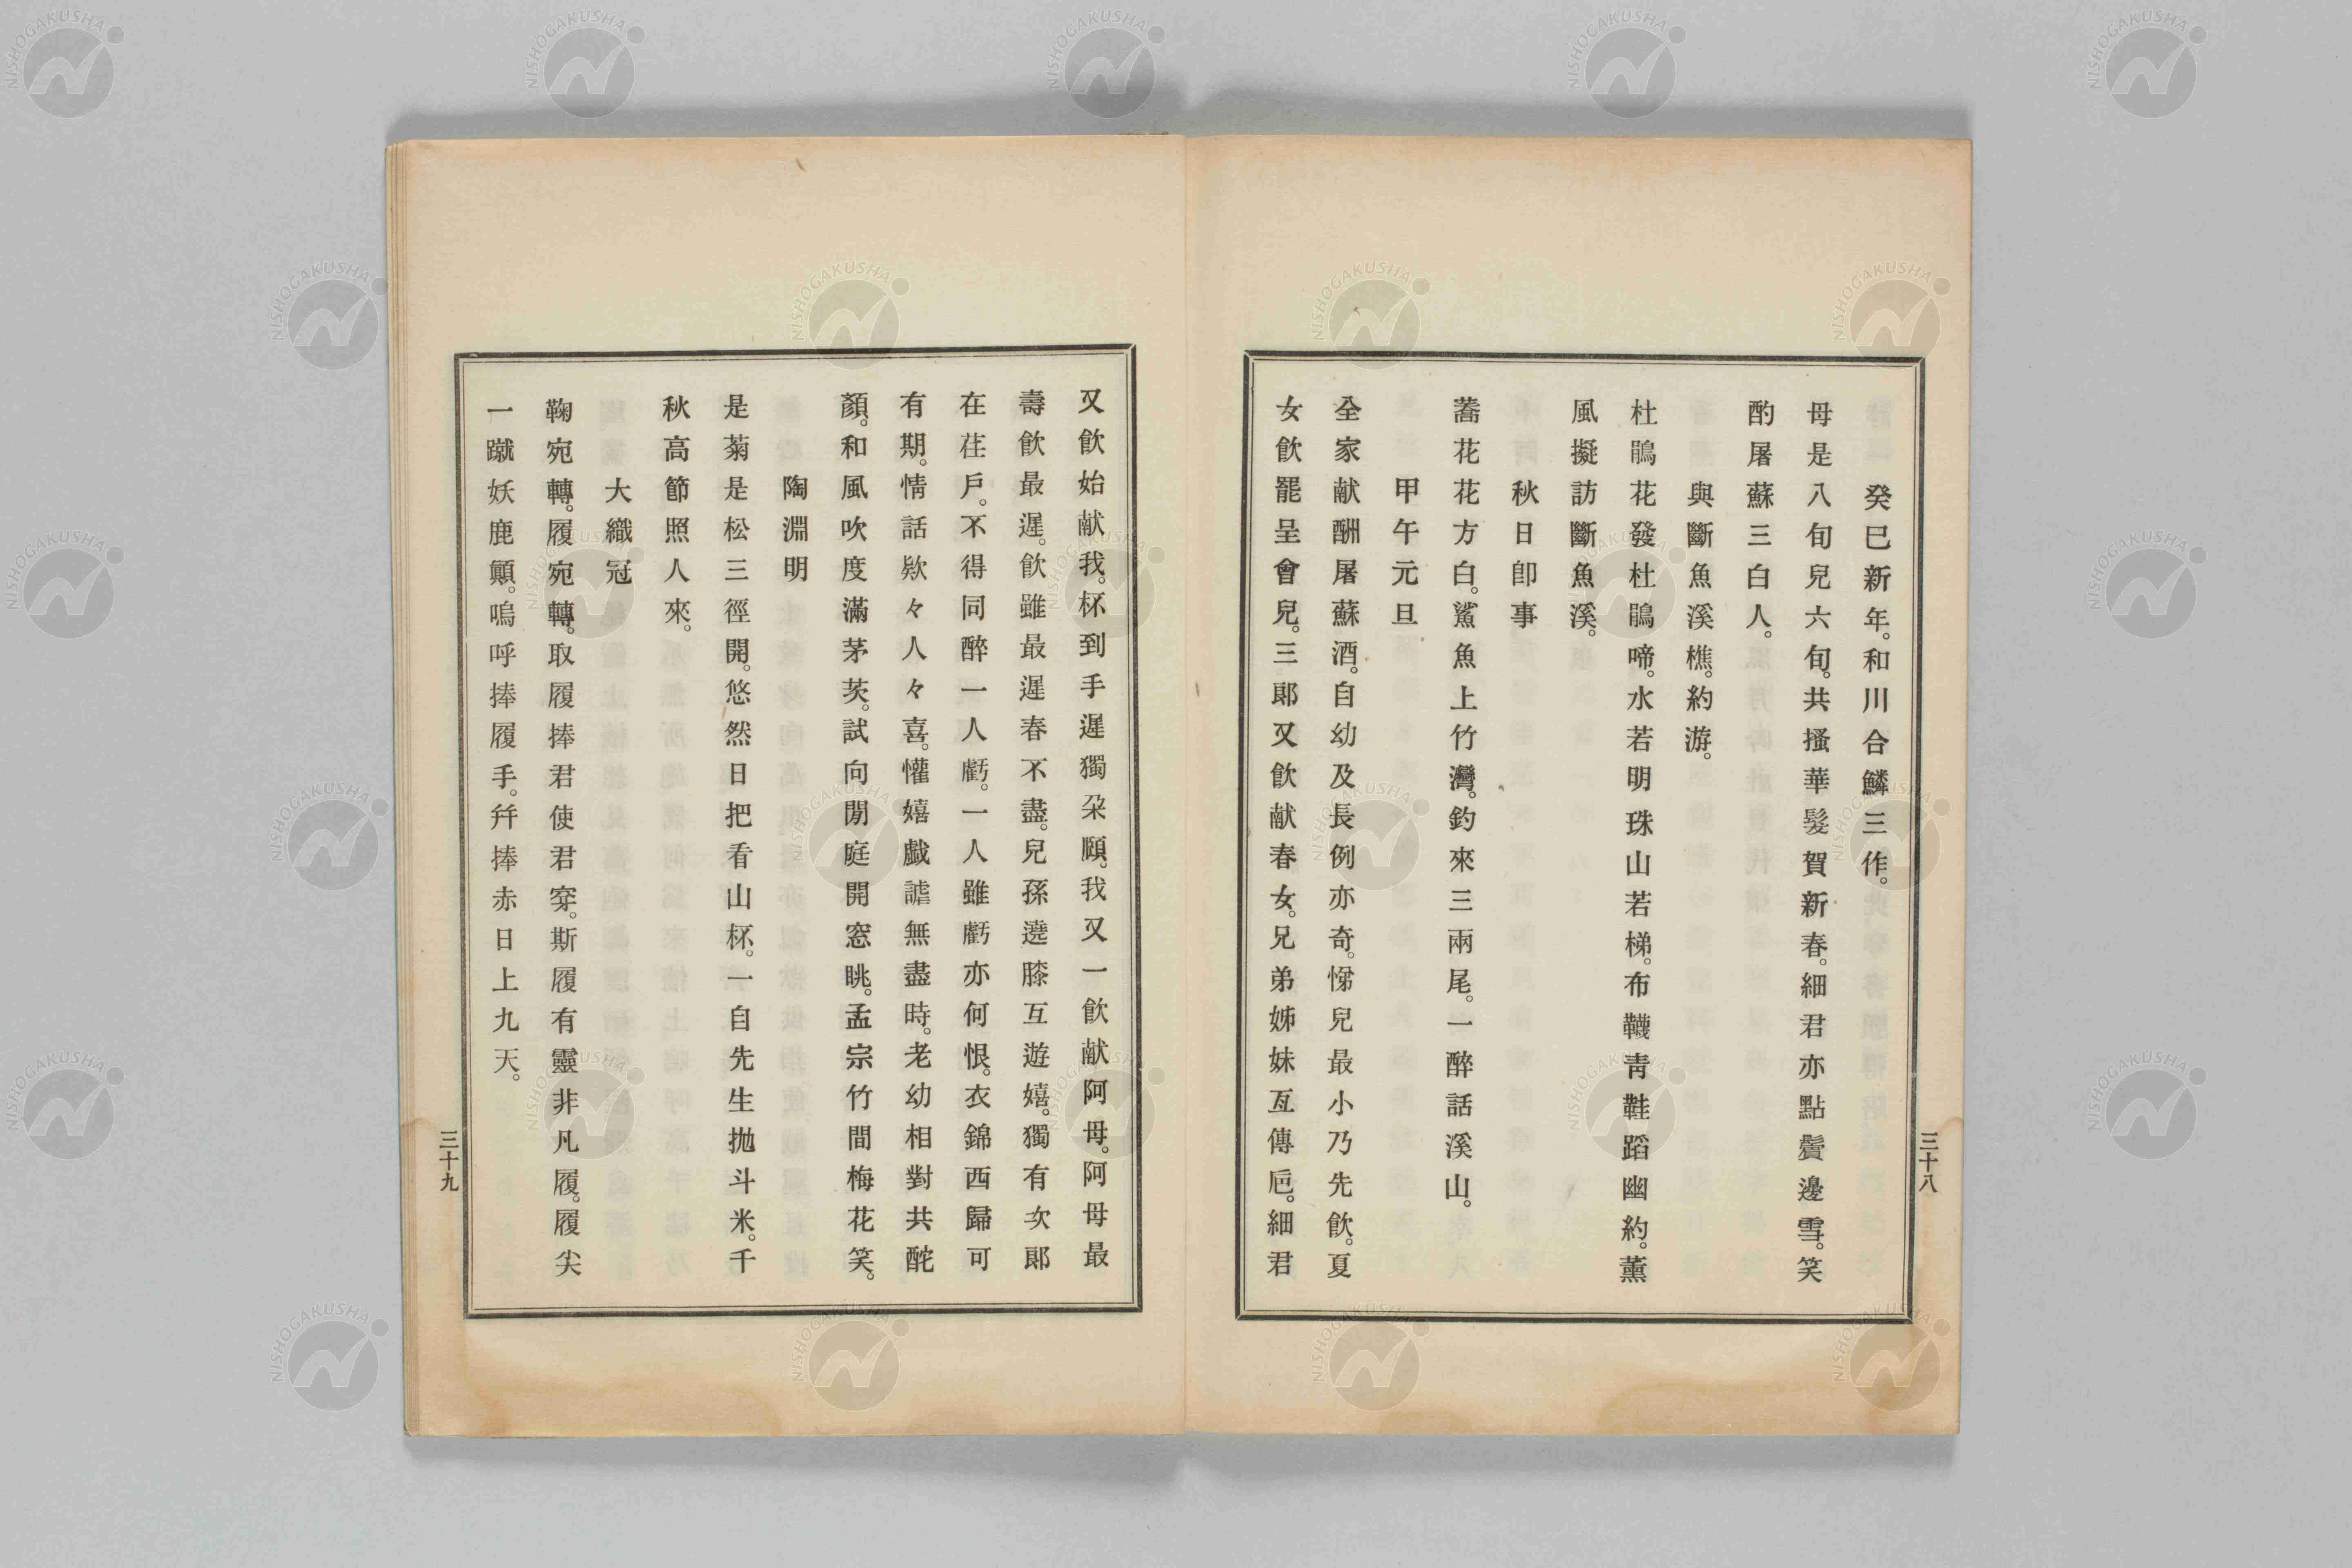 癸巳新年。和川合鱗三作。
母是八旬兒六旬。共搔華髮賀新春。細君亦點鬢邊雪。笑
酌屠蘇三白人。
與斷魚溪樵。約游。
杜鵑花發杜鵑啼。水若明珠山若梯。布韈靑鞋蹈幽約。薰
風擬訪斷魚溪。
秋日卽事
蕎花花方白。鯊魚上竹灣。釣來三兩尾。一醉話溪山。
甲午元旦
全家献酬屠蘇酒。自幼及長例亦奇。悌兒最小乃先飮。夏
女飮罷呈會兒。三郞又飮献春女。兄弟姊妹互傳巵。細君
三十八
又飮始献我。杯到手遲獨朶頤。我又一飮献阿母。阿母最
壽飮最遲。飮雖最遲春不盡。兒孫遶膝互遊嬉。獨有次郞
在荏戶。不得同醉一人虧。一人雖虧亦何恨。衣錦西歸可
有期。情話欵々人々喜。懽嬉戲謔無盡時。老幼相對共酡
顏。和風吹度滿茅茨。試向閒庭開窓眺。孟宗竹間梅花笑。
陶淵明
是菊是松三徑開。悠然日把看山杯。一自先生抛斗米。千
秋高節照人來。
大織冠
鞠宛轉。履宛轉。取履捧君使君穿。斯履有靈非凡履。履尖
一蹴妖鹿顚。嗚呼捧履手。幷捧赤日上九天。
三十九
NISHOGAKUSHA